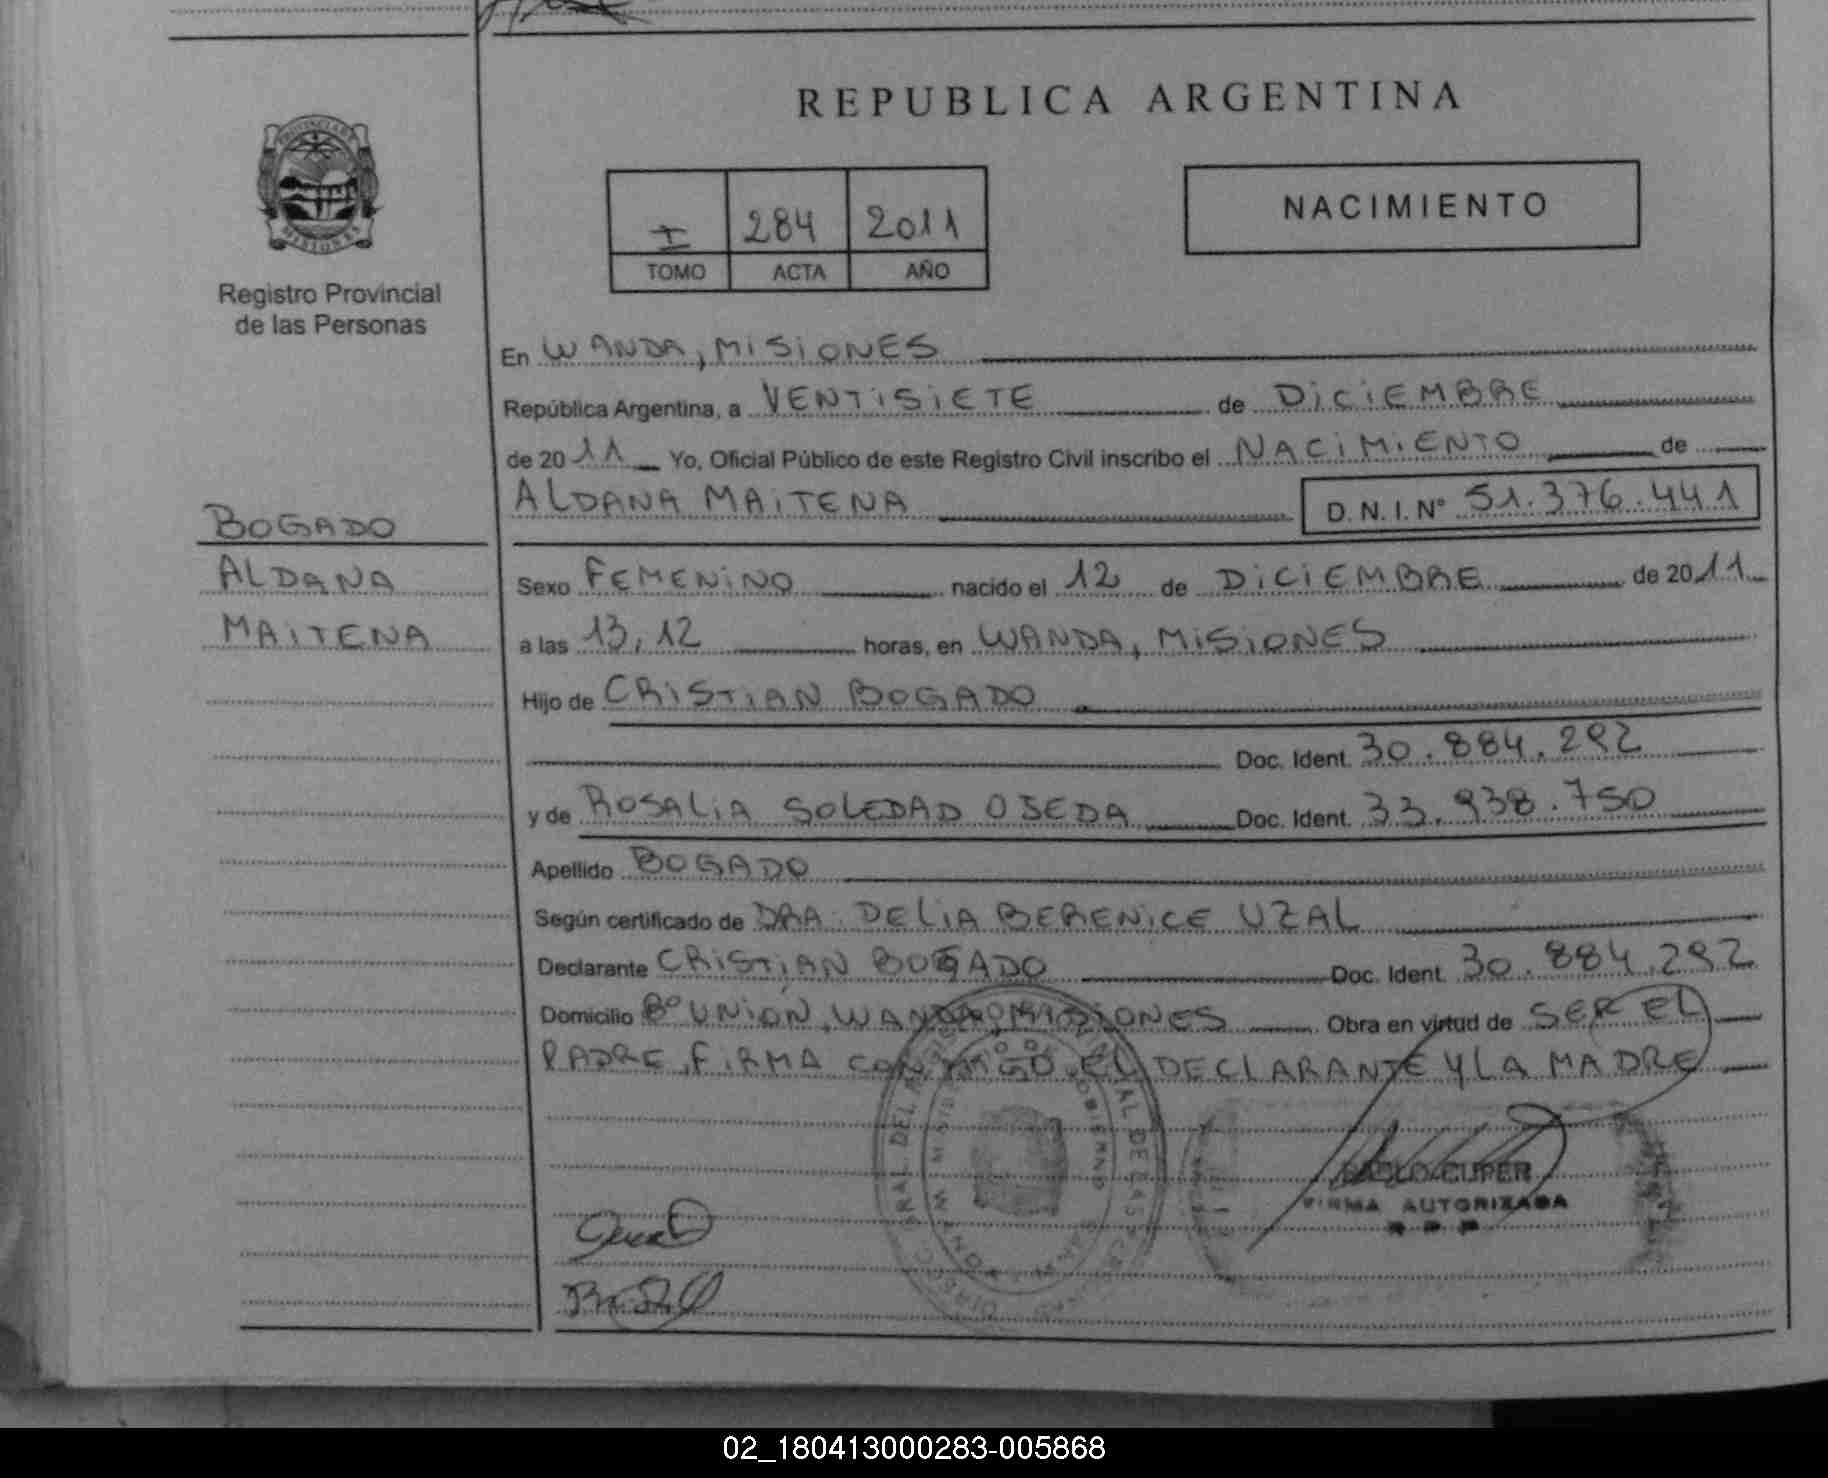 REPUBLICA ARGENTINA
PROVINCIA DE
MISIONES
Registro Provincial
de las Personas
I 284 2011
TOMO ACTA AÑO
NACIMIENTO
En WANDA, MISIONES
República Argentina, a VENTISIETE de DICIEMBRE
de 2011 Yo, Oficial Público de este Registro Civil inscribo el NACIMIENTO de
ALDANA MAITENA D.N.I.Nº 51.376.441
BOGADO
ALDANA
MAITENA
Sexo FEMENINO nacido el 12 de DICIEMBRE de 2011
a las 13,12 horas, en WANDA, MISIONES
Hijo de CRISTIAN BOGADO
Doc. Ident. 30.884.292
y de ROSALIA SOLEDAD OJEDA Doc. Ident. 33.938.750
Apellido BOGADO
Según certificado de DRA. DELIA BERENICE UZAL
Declarante CRISTIAN BOGADO Doc. Ident. 30.884.292
Domicilio Bº UNIÓN, WANDA, MISIONES Obra en virtud de SER EL
PADRE, FIRMA CONMIGO EL DECLARANTE Y LA MADRE
PABLO CUPER
FIRMA AUTORIZADA
R P P
02_180413000283-005868